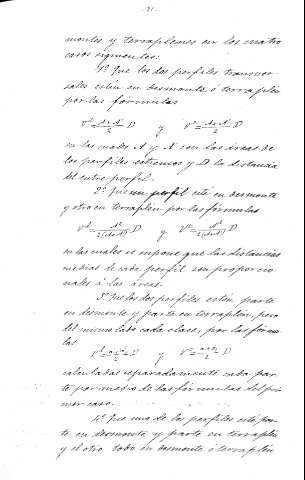 -21-
montes y terraplenes en los cuatro
casos siguientes:
1º Que los dos perfiles transver
sales estén en desmonte ó terraplén
por las fórmulas
V^d = (A+A')/2 D y V^t = (A+A')/2 D
en las cuales A y A' son las áreas de
los perfiles extremos y D la distancia
del entre perfil.
2º Que un perfil esté en desmonte
y otro en terraplén por las fórmulas
V^d = A²/2(A+A') D y V^t = A'²/2(A+A') D
en las cuales se supone que las distancias
medias de cada perfil son proporcio
nales á las áreas.
3º Que los dos perfiles estén parte
en desmonte y parte en terraplén, pero
del mismo lado cada clase, por las fórmu
las
D y D
calculadas separadamente cada par
te por medio de las fórmulas del pri
mer caso.
4º Que uno de los perfiles esté par
te en desmonte y parte en terraplén
y el otro todo en desmonte ó terraplén